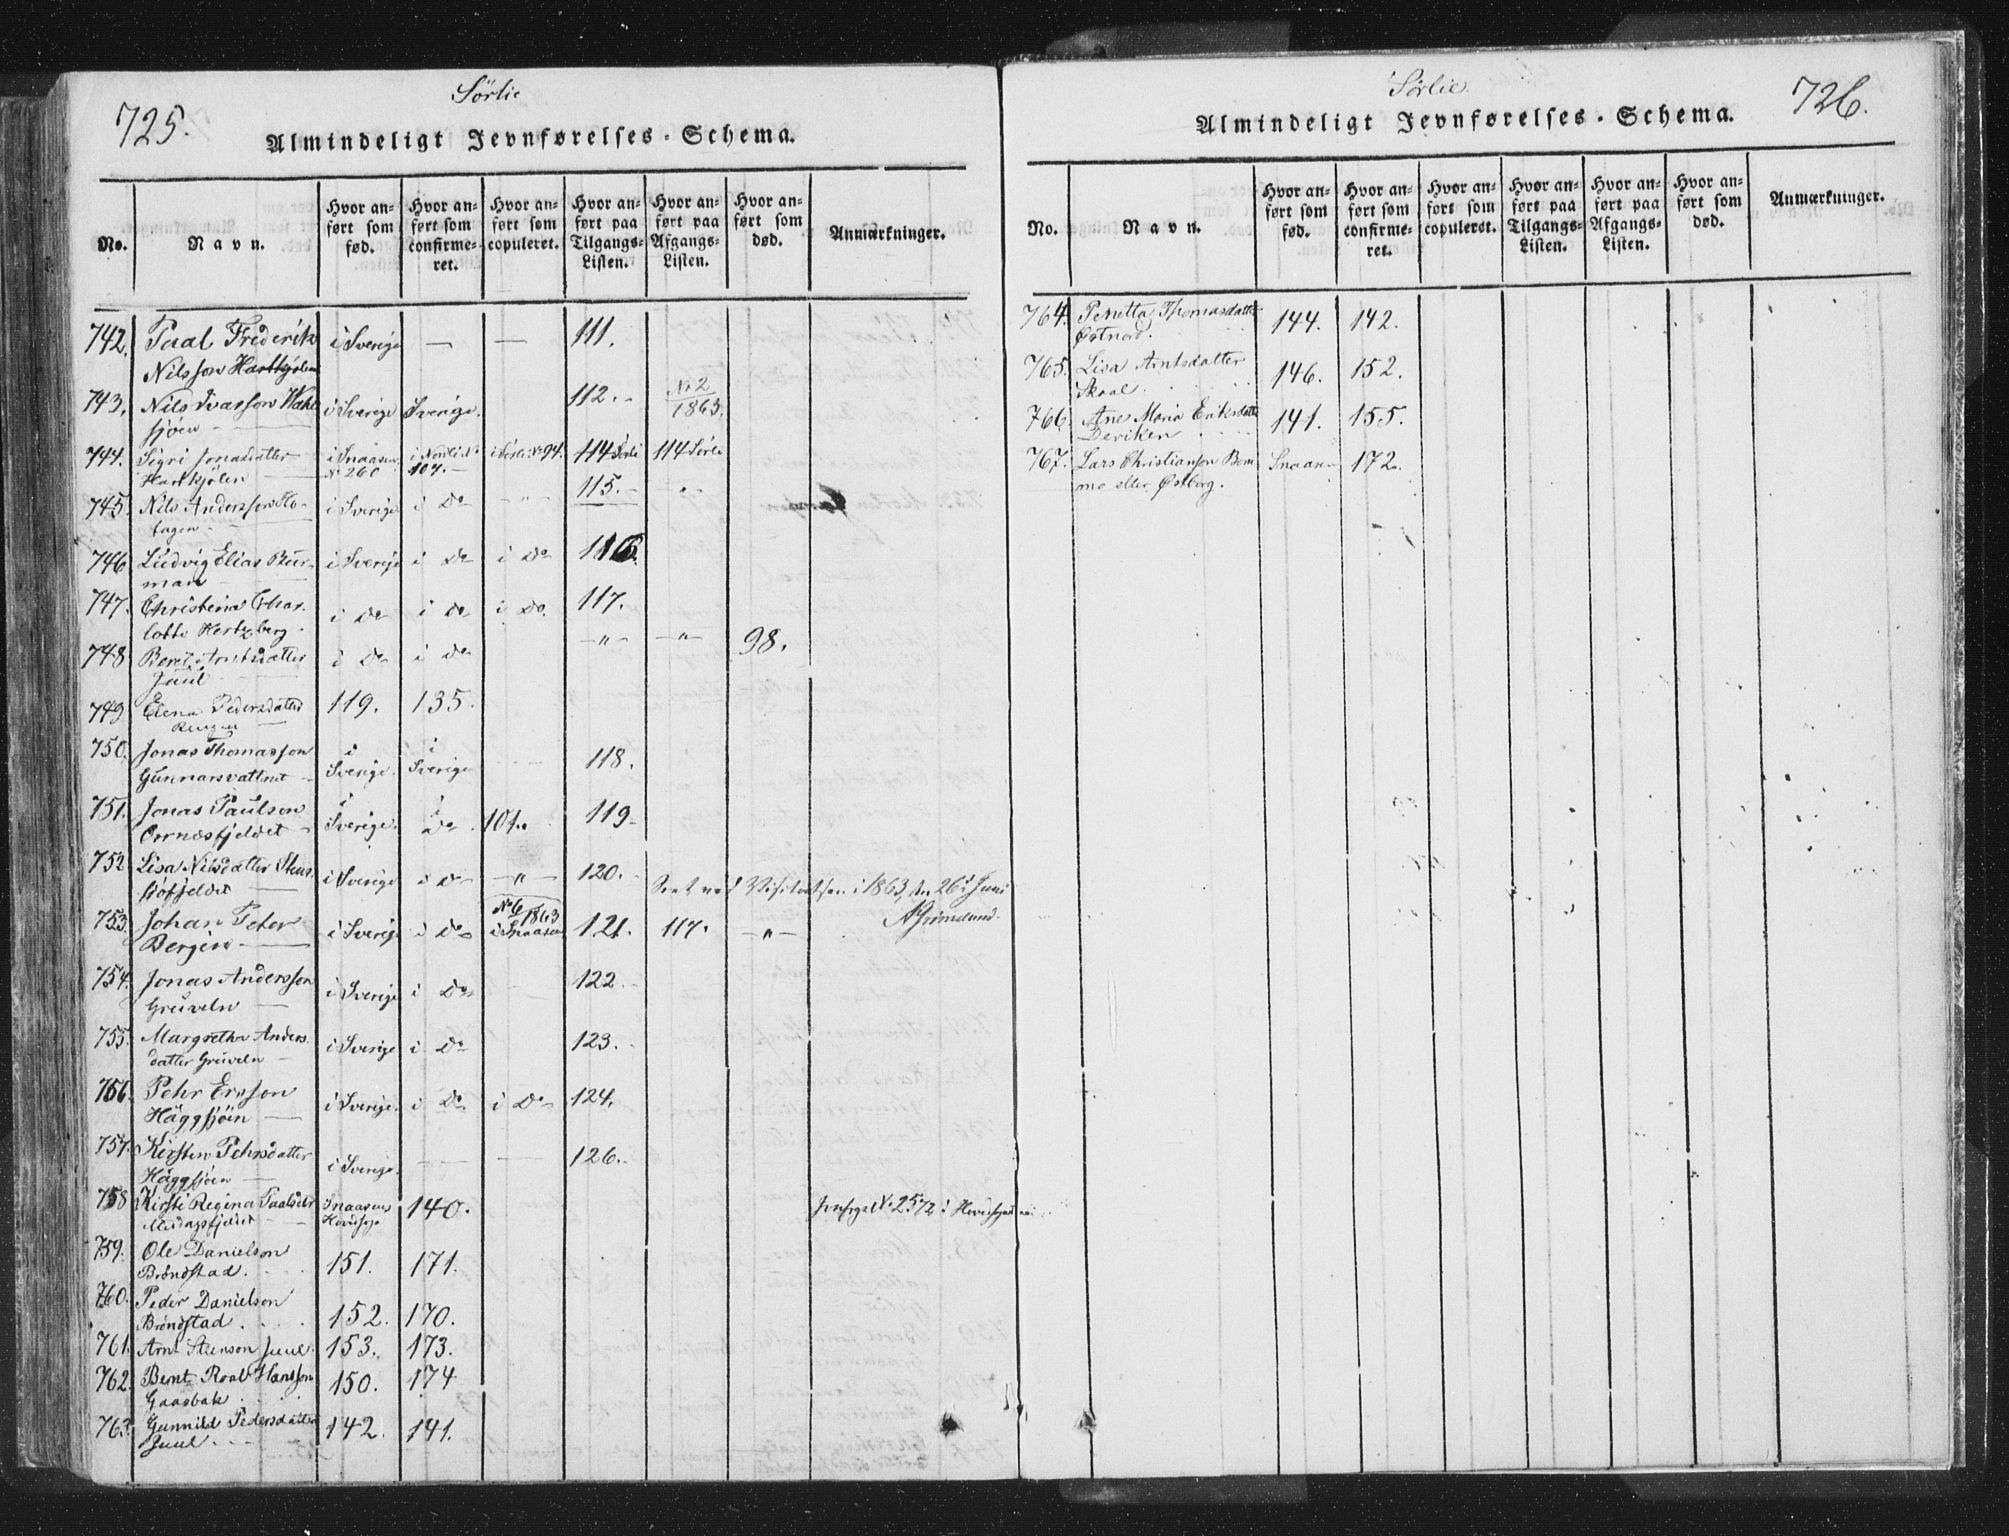 725.
Sörlie
Almindeligt Jevnførelses-Schema.
No. Navn. Hvor anført som fød. Hvor anført som confirmeret. Hvor anført som copuleret. Hvor anført paa Tilgangs-Listen. Hvor anført paa Afgangs-Listen. Hvor anført som død. Anmærkninger.
742. Paal Frederik i Sverige — — 111.
Nilsson Hartkjölen
743. Nils Ivarsson i Sverige Sverige. 112. No 2 1863.
sjöen
744. Sigri Jonasdatter i Snaasen No 260 i Nordli No 107. i Sörli No 94. 114 Sörli 114 Sörli
Hartkjölen
745. Nils Andersson Ho- i Sverige i Do 115. "
tagen
746 Ludvig Elias Bur- i Sverige i Do i Do 116.
man
747. Christina Char- i Do i Do i Do 117.
lotte Hertzberg.
748 Beret Arntsdatter i Do i Do — " — — " — 98.
Juul
749 Elena Pedersdatter 119. 135.
750. Jonas Thomasson i Sverige. i Sverige 118.
Gunnarsvattnet
751. Jonas Paulson i Sverige. i Do 101. 119
Ornæsfjeldet
752 Lisa Nilsdatter i Sverige i Do — " — 120.
Seet ved Visitatsen i 1863, den 26de Juni
AGrimelund.
753. Johan Peter i Sverige i Do No 6 1863 i Snaasen 121. 117. — " —
Bergin
754. Jonas Andersson i Sverige i Do 122
Gruveln
755. Margretha Anders- i Sverige i Do 123.
datter Gruveln
756. Pehr Ersson i Sverige. i Do i Do 124.
Häggsjöen
757. Kirsten Pehrsdatter i Sverige. 126.
Häggsjöen
758 Kirsti Regina Paalsdtr Snaasens Hovedsogn 140. Jevnført No 2572 i Hovedsognet
759. Ole Danielson 151. 171.
Bröndstad.
760. Peder Danielson 152. 170.
Bröndstad.
761. Arnt Stenson Juul. 153. 173.
762. Bernt Roal Hansson 150. 174
Gaasbak
763. Gunnild Pedersdatter 142. 141.
Juul.
Sörlie.
726.
Almindeligt Jevnførelses-Schema.
No. Navn. Hvor anført som fød. Hvor anført som confirmeret. Hvor anført som copuleret. Hvor anført paa Tilgangs-Listen. Hvor anført paa Afgangs-Listen. Hvor anført som død. Anmærkninger.
764. Penetta Thomasdatter 144. 142.
Østnord.
765. Lisa Arntsdatter 146. 152.
Skaal.
766. Ane Maria Eriksdatter 141. 155.
Deviken
767. Lars Christianson Bom- Snaasen 172.
mo eller Østborg.